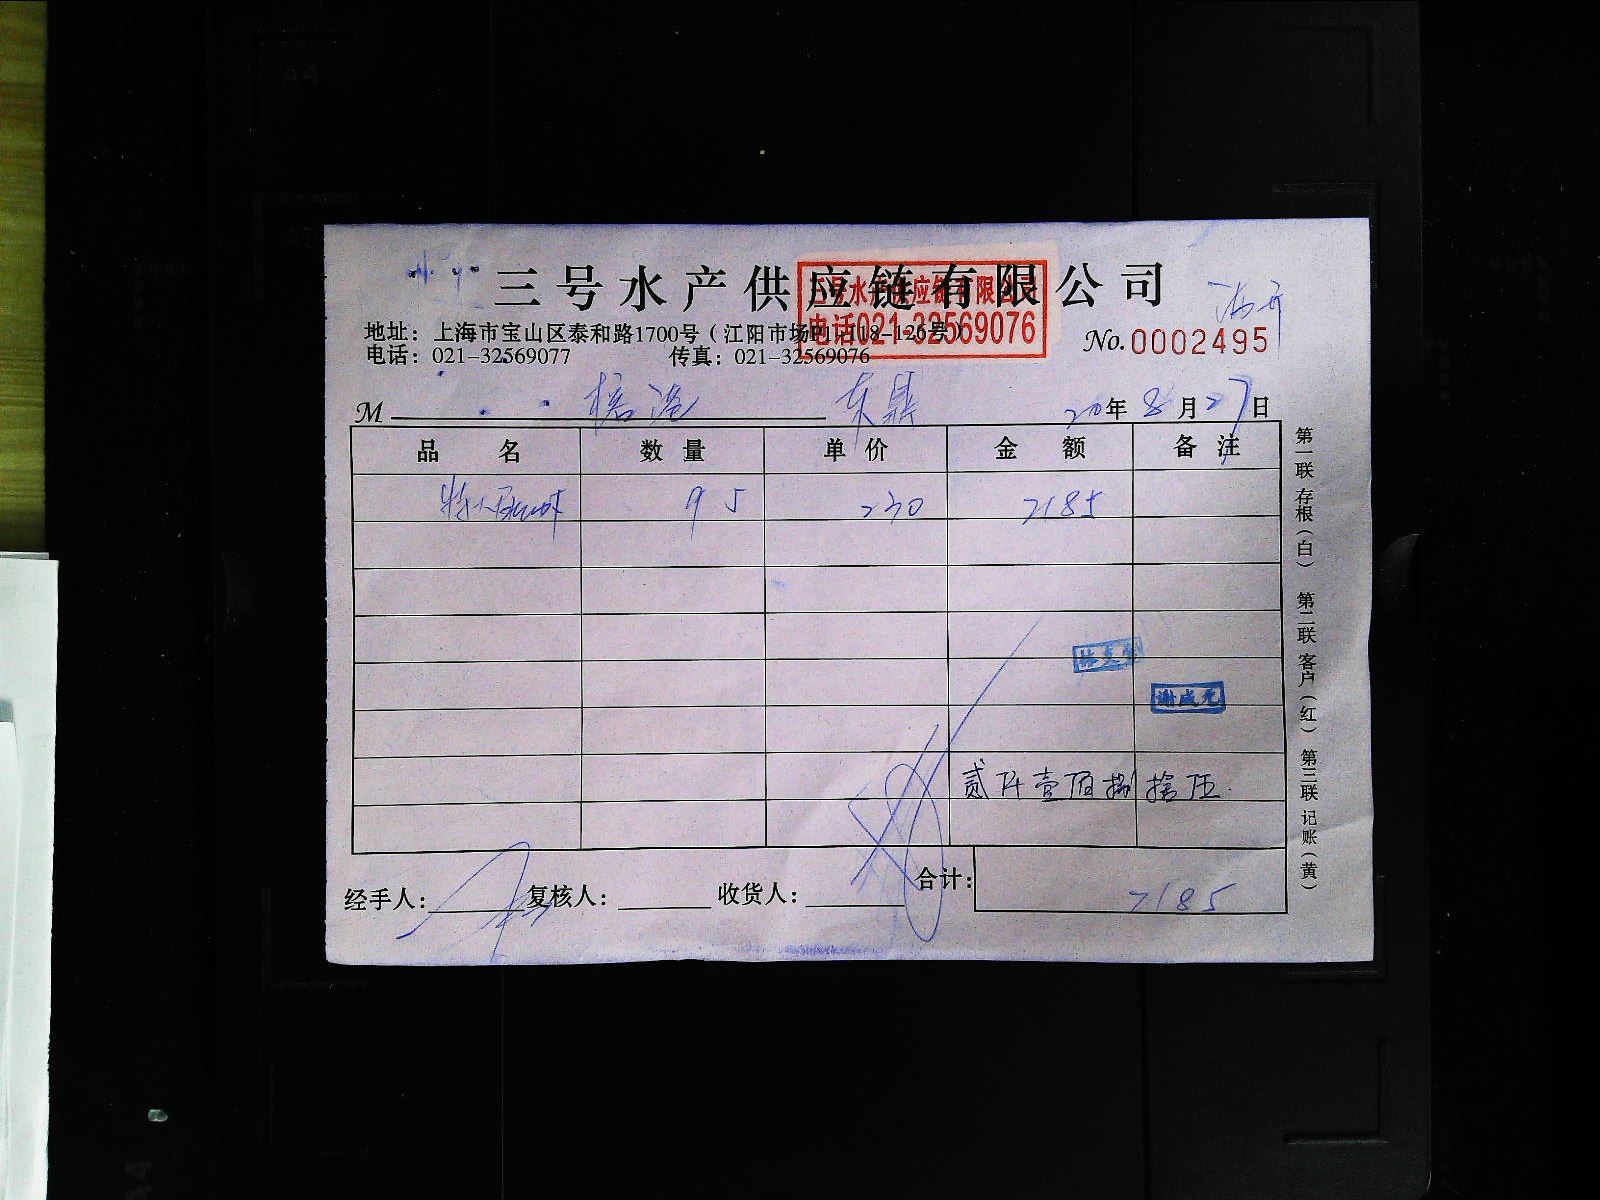 三号水产供应链有限公司
三号水产供应链有限公司
电话021-32569076
地址：上海市宝山区泰和路1700号（江阳市场
电话：021-32569077 传真：021-32569076
No.0002495
M 东鼎 20年8月27日
品名 数量 单价 金额 备注
95 230 2185
谢成光
贰仟壹佰捌拾伍
经手人： 复核人： 收货人： 合计： 2185
第一联 存根（白） 第二联 客户（红） 第三联 记账（黄）